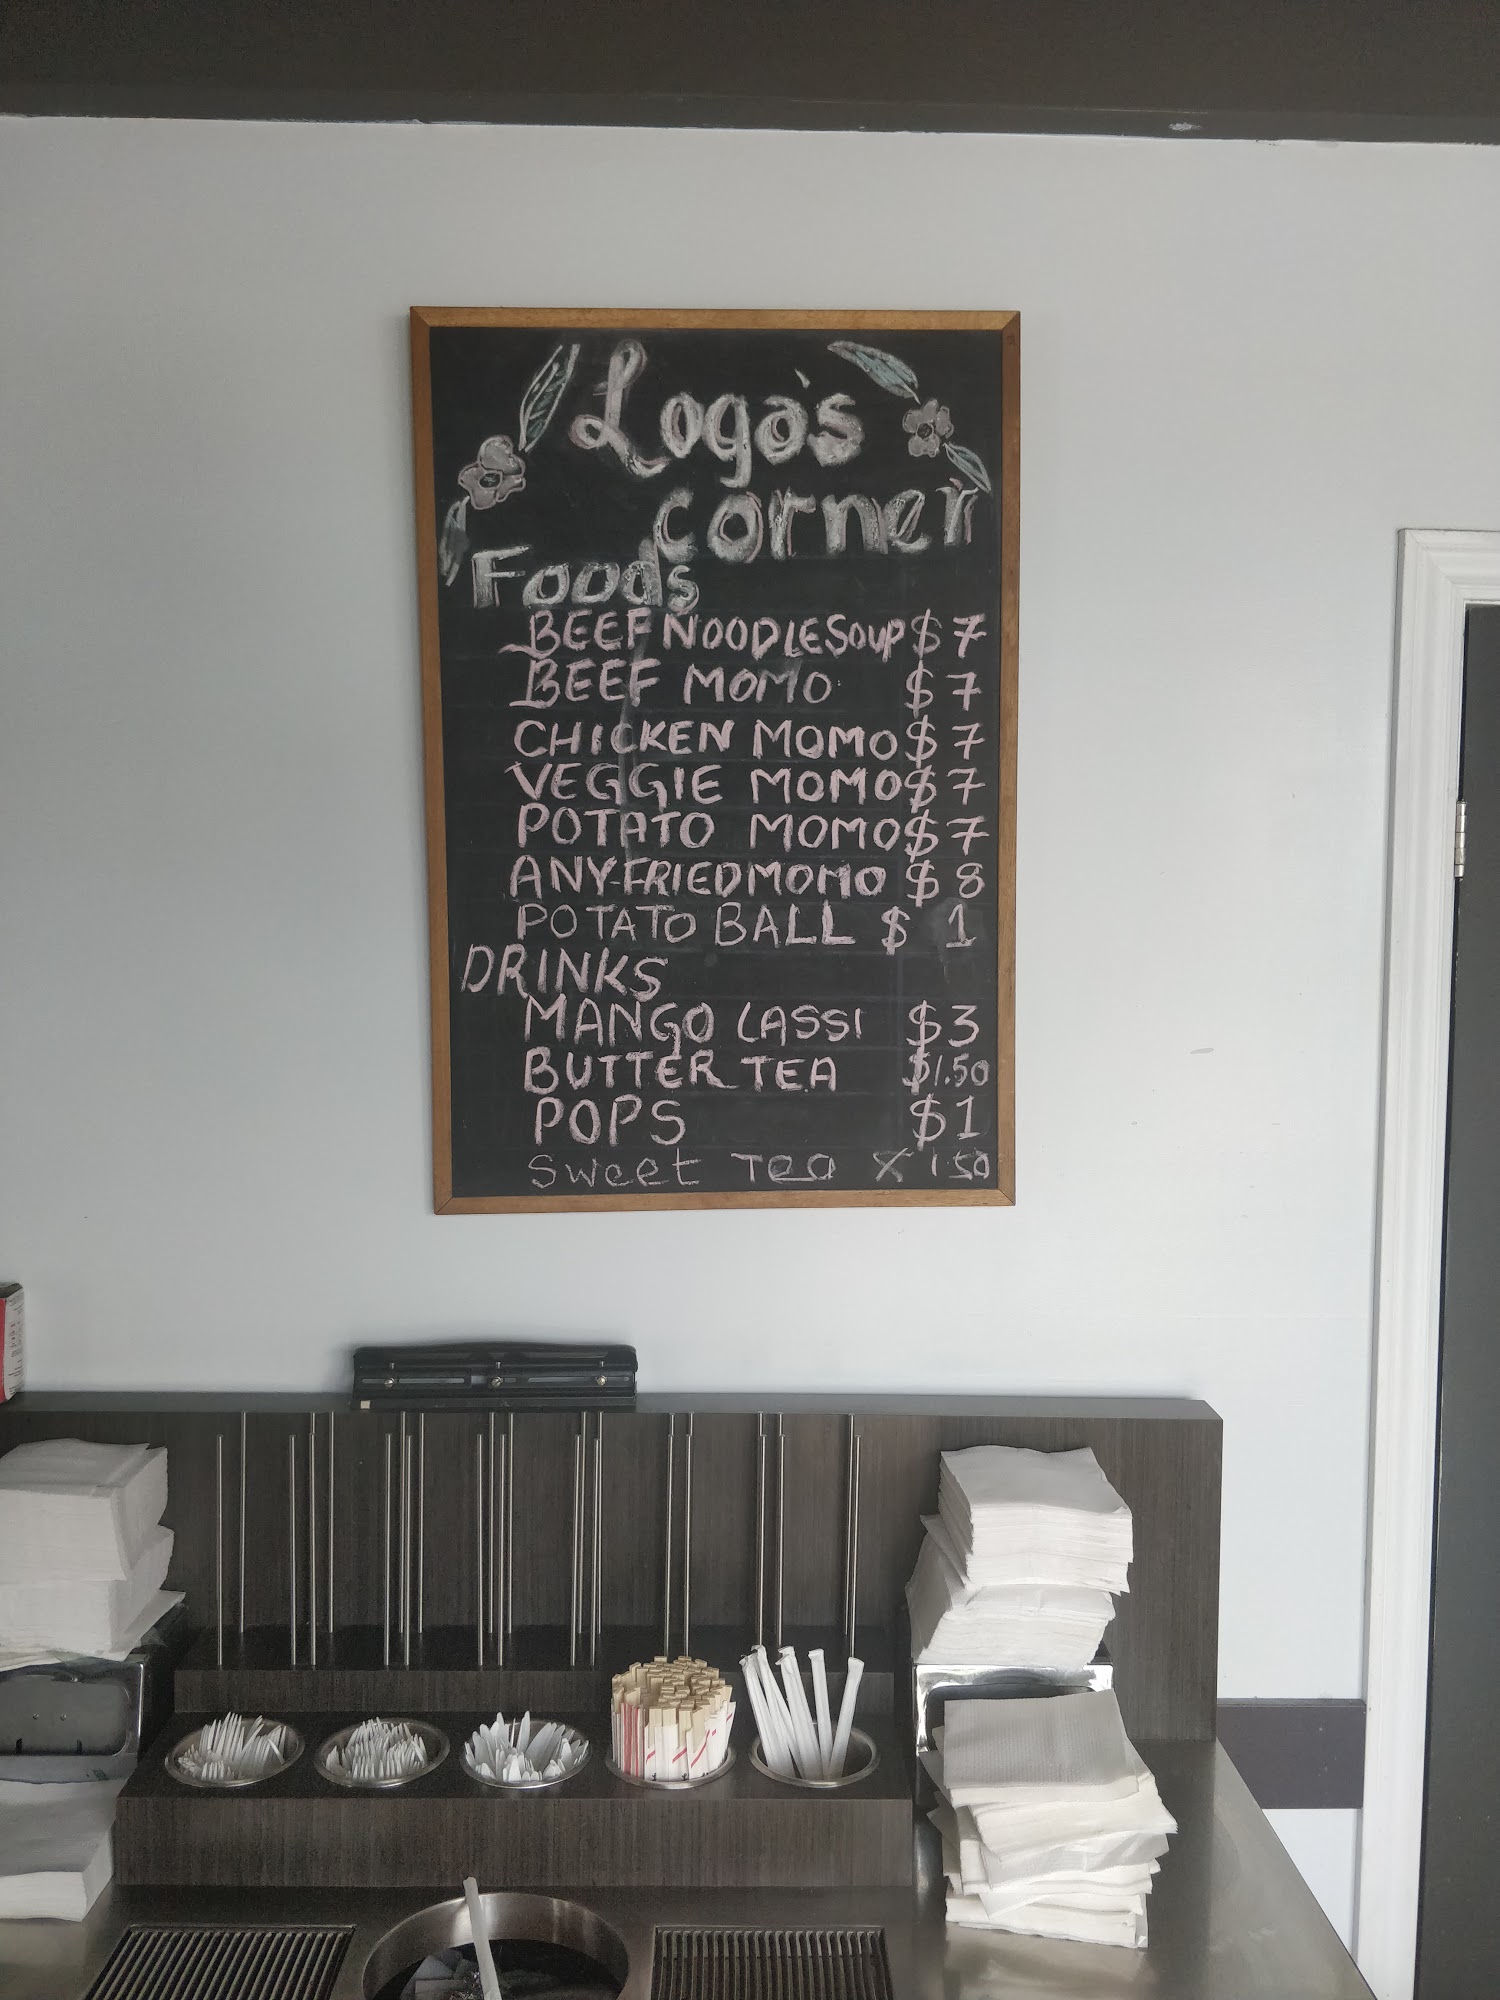 Loga's
corner
Foods
BEEF NOODLE SOUP $ 7
BEEF MOMO $ 7
CHICKEN MOMO $ 7
VEGGIE MOMO $ 7
POTATO MOMO $ 7
ANY FRIED MOMO $ 8
POTATO BALL $ 1
DRINKS
MANGO LASSI $3
BUTTER TEA $1.50
POPS $1
Sweet Tea 1.50